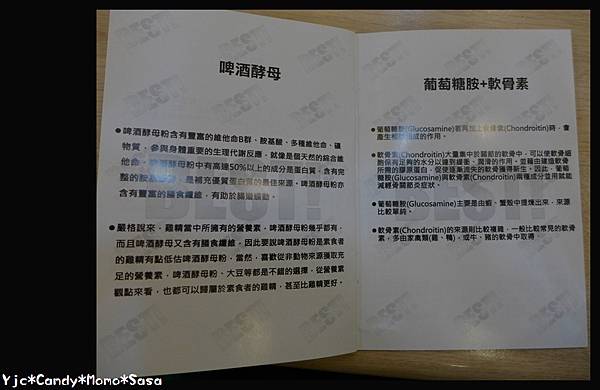 啤酒酵母
●啤酒酵母粉含有豐富的維他命B群、胺基酸、多種維他命、礦
物質,參與身體重要的生理代謝反應,就像是個天然的綜合維
他命。啤酒酵母粉中有高達50%以上的成分是蛋白質,含有完
整的胺基酸群,是補充優質蛋白質的最佳來源。啤酒酵母粉亦
含有豐富的膳食纖維,有助於腸道蠕動。
●嚴格說來,雞精當中所擁有的營養素,啤酒酵母粉幾乎都有,
而且啤酒酵母又含有膳食纖維,因此要說啤酒酵母粉是素食者
的雞精有點低估啤酒酵母粉,當然,喜歡從非動物來源獲取充
足的營養素,啤酒酵母粉、大豆等都是不錯的選擇,從營養素
觀點來看,也都可以歸屬於素食者的雞精,甚至比雞精更好。
葡萄糖胺+軟骨素
●葡萄糖胺(Glucosamine)若再加上軟骨素(Chondroitin)時,會
產生相輔相成的作用。
●軟骨素(Chondroitin)大量集中於關節的軟骨中,可以使軟骨細
胞保有足夠的水分以達到緩衝、潤滑的作用。並藉由建造軟骨
所需的膠原蛋白,促使逐漸流失的軟骨獲得新生。因此,葡萄
糖胺(Glucosamine)與軟骨素(Chondroitin)兩種成分並用就能
減輕骨關節炎症狀。
●葡萄糖胺(Glucosamine)主要是由蝦、蟹殼中提煉出來,來源
比較單純。
●軟骨素(Chondroitin)的來源則比較複雜,一般比較常見的軟骨
素,多由家禽類(雞、鴨),或牛、豬的軟骨中取得。
BEST!
Yjc*Candy*Momo*Sasa